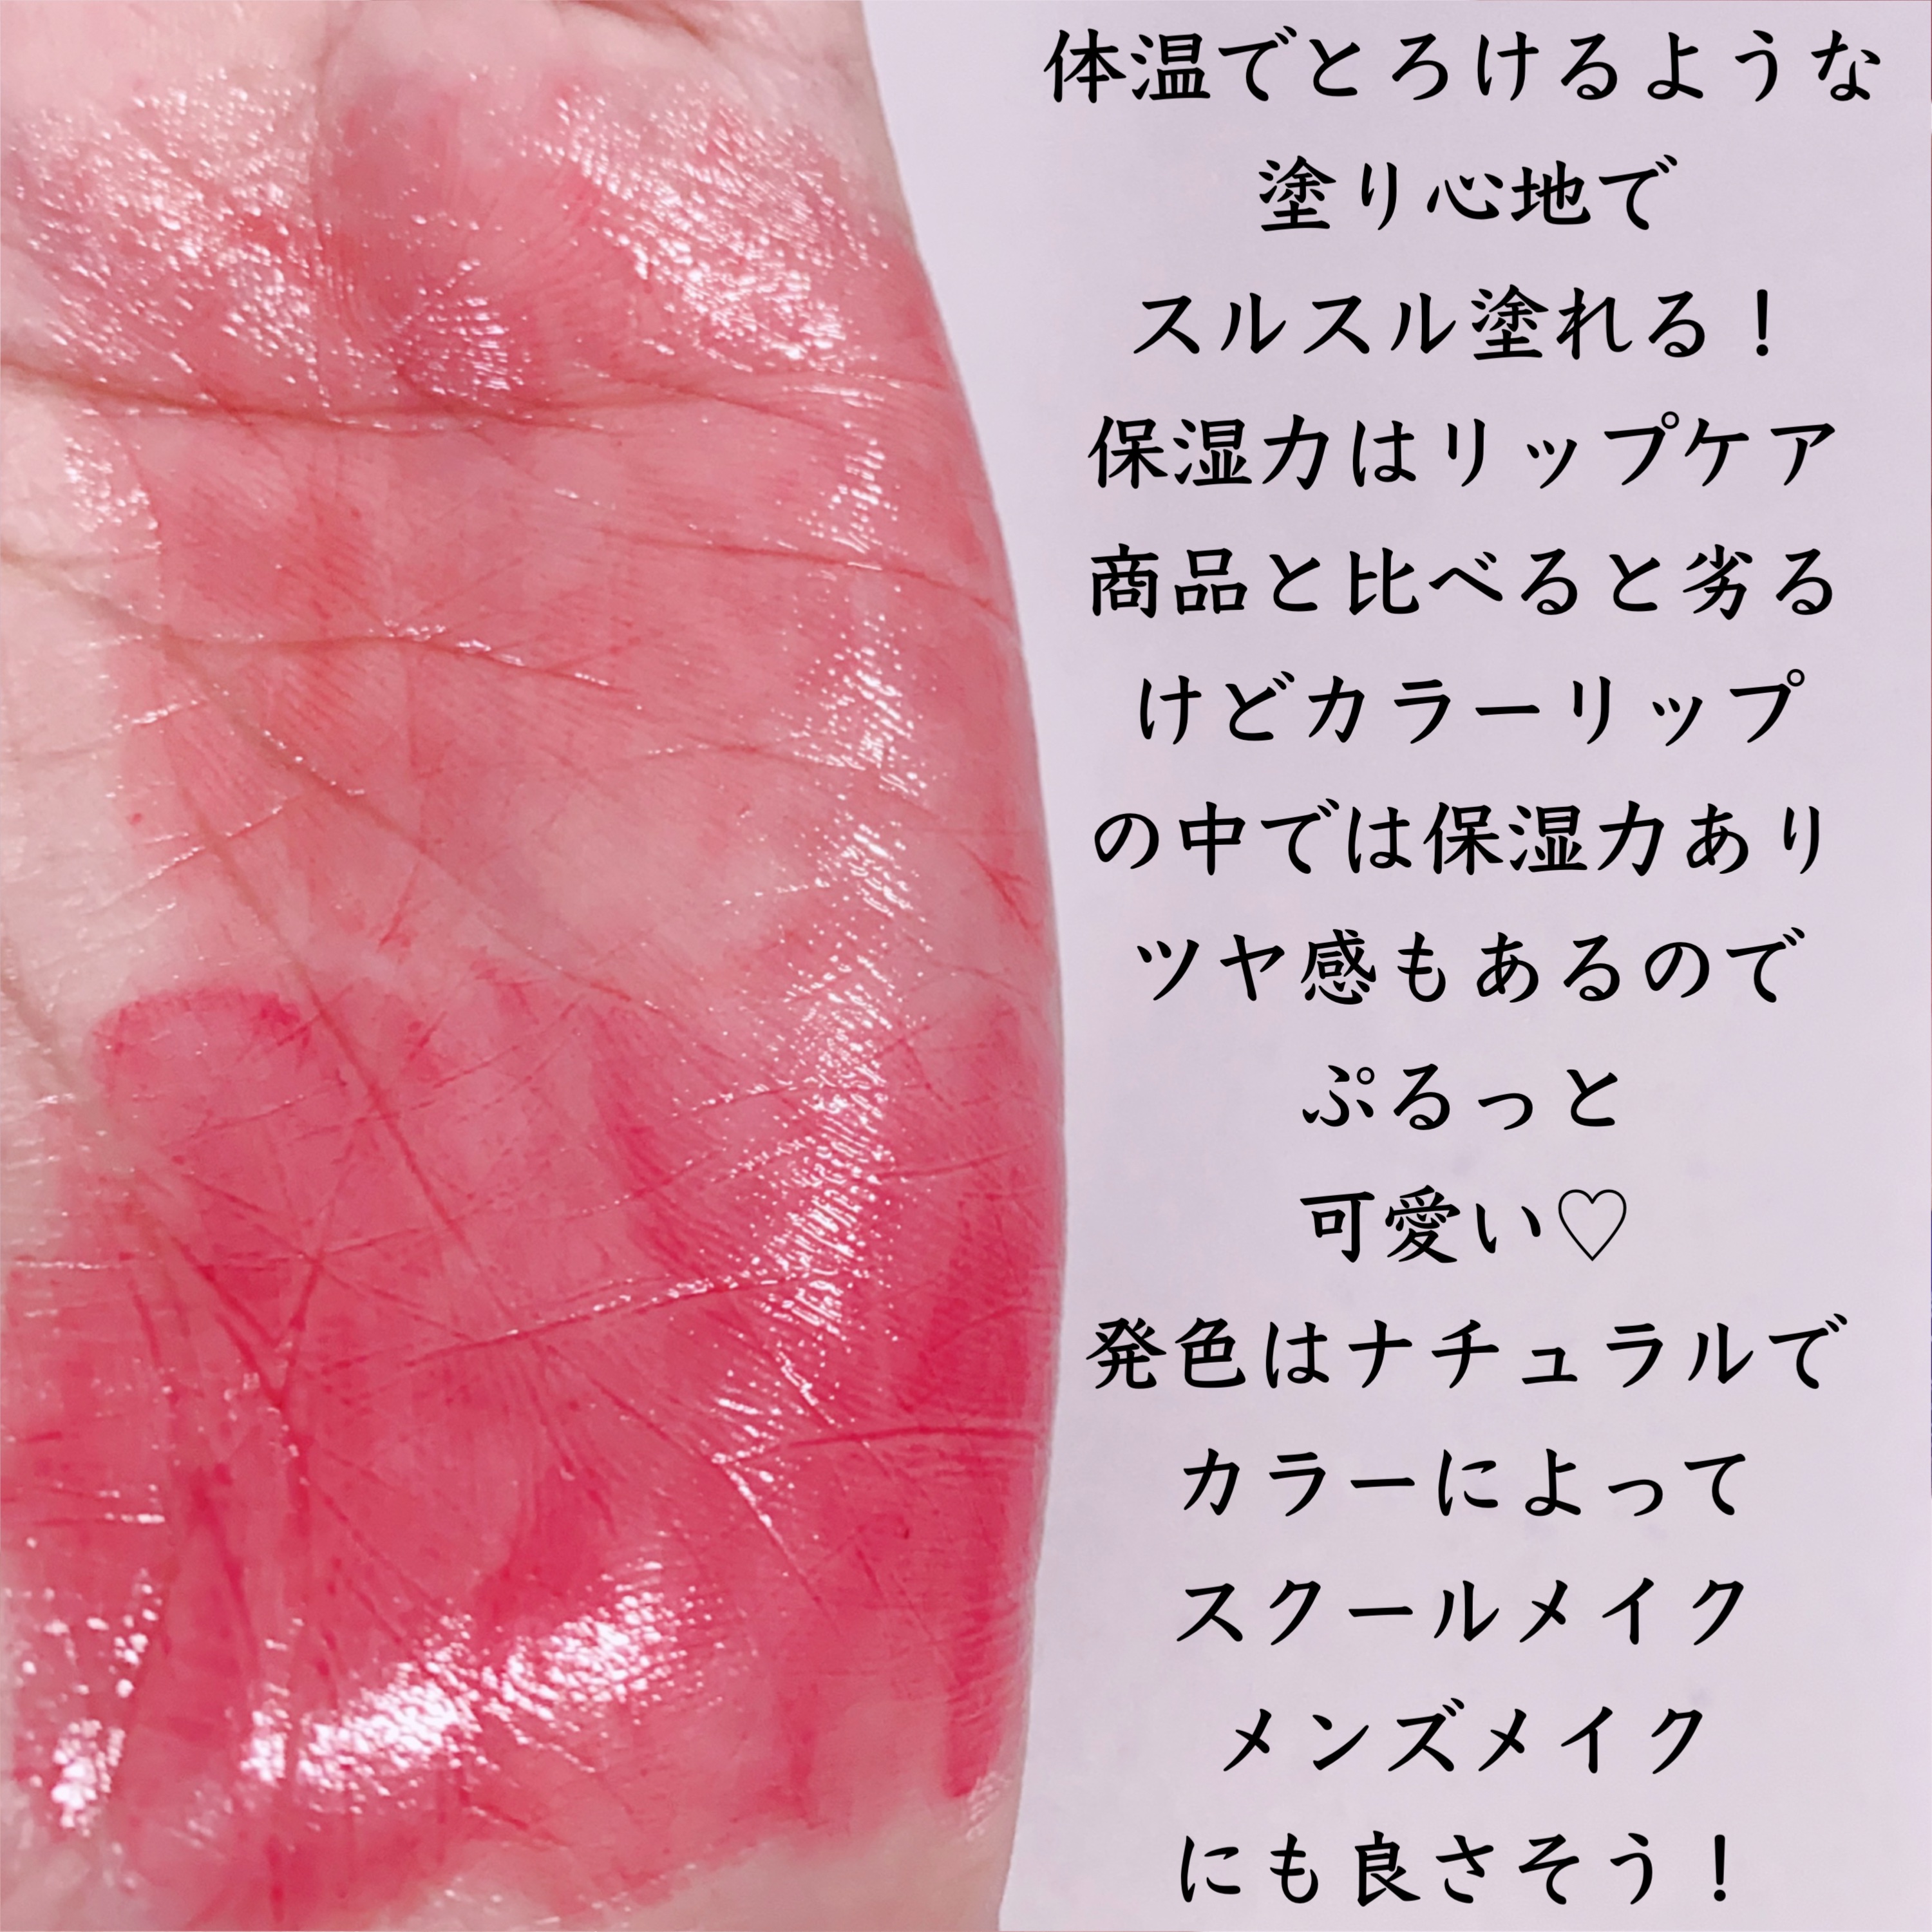 体温でとろけるような
塗り心地で
スルスル塗れる！
保湿力はリップケア
商品と比べると劣る
けどカラーリップ
の中では保湿力あり
ツヤ感もあるので
ぷるっと
可愛い♡
発色はナチュラルで
カラーによって
スクールメイク
メンズメイク
にも良さそう！